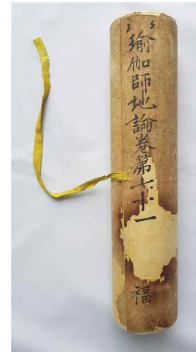 瑜伽師地論卷第七十一
福